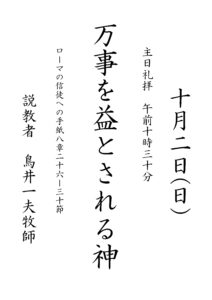 十月二日(日)
主日礼拝 午前十時三十分
万事を益とされる神
ローマの信徒への手紙八章二十六ー三十節
説教者 鳥井一夫牧師